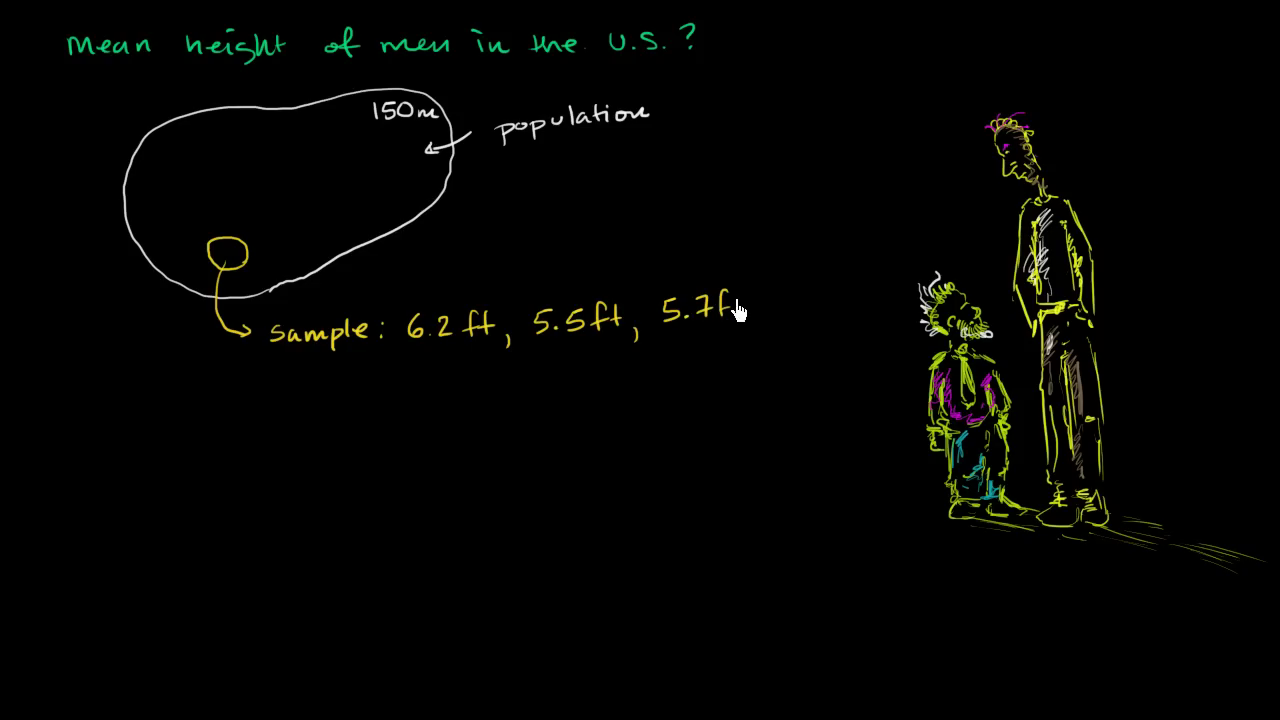 Mean height of men in the U.S.?
150m
population
sample: 6.2 ft, 5.5ft, 5.7f